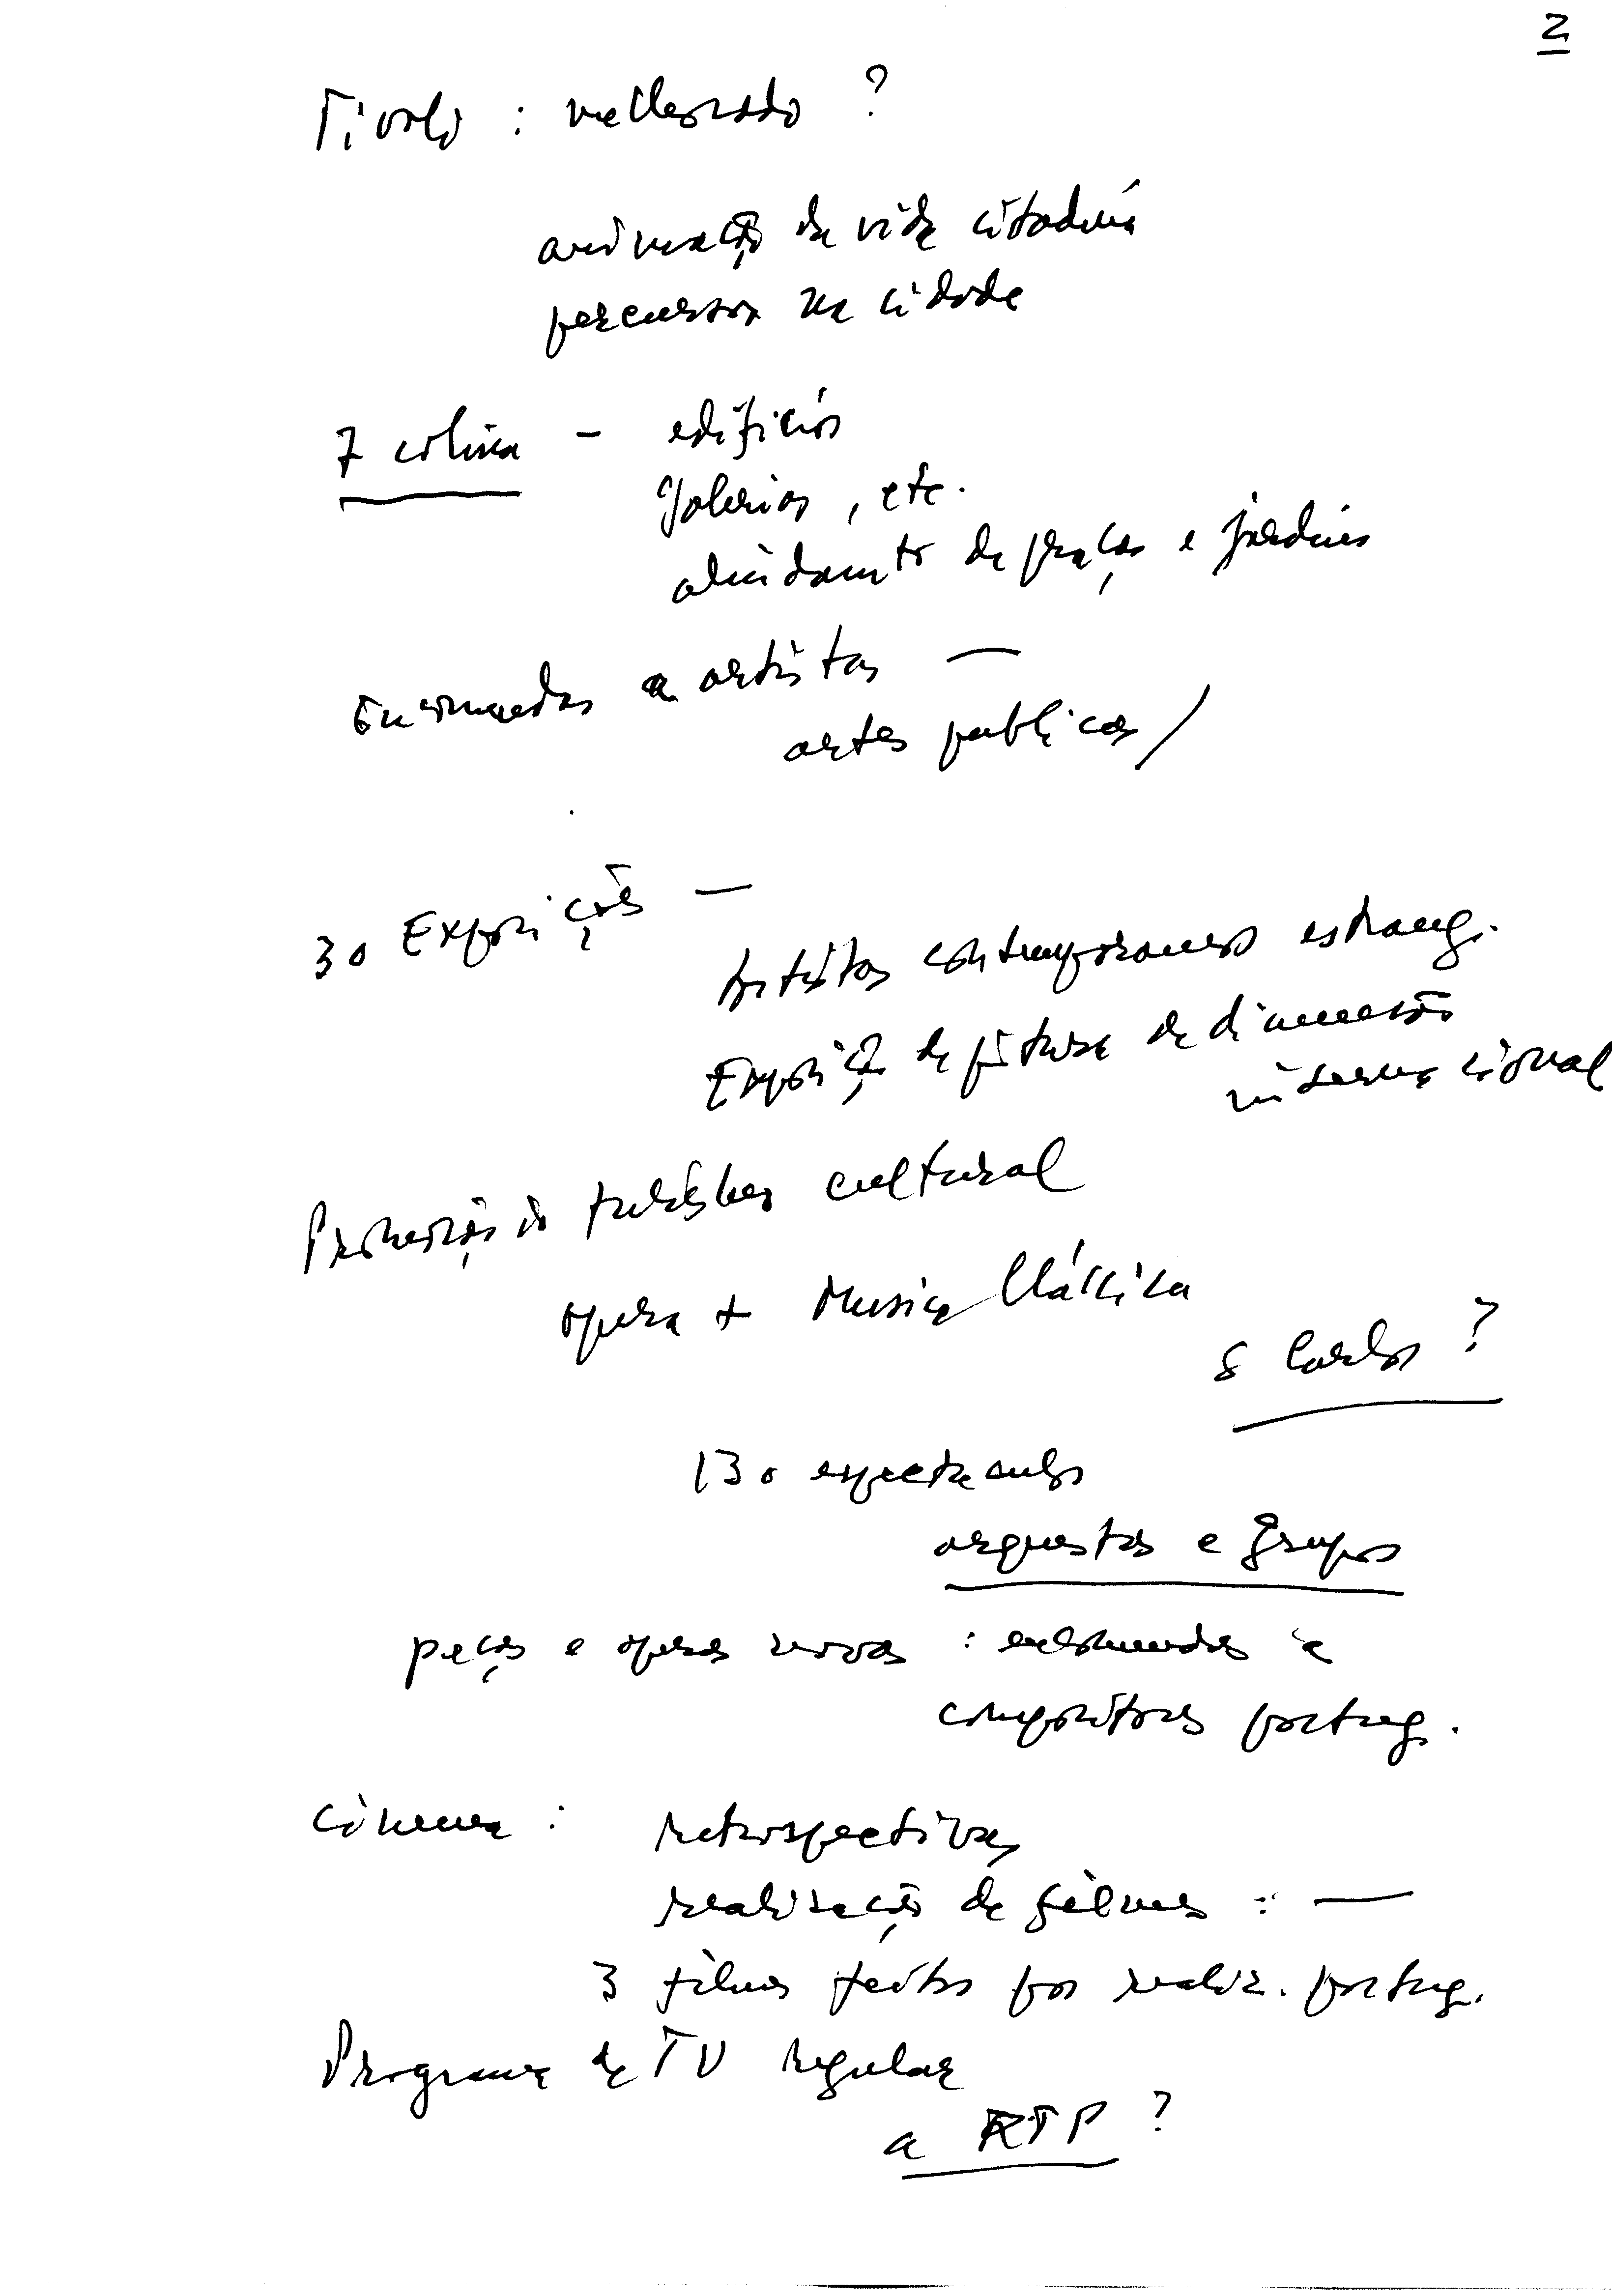 2
Tivoli : melhorado ?
animação da vida citadina
percursos na cidade
7 colina - edificios
galerias, etc.
de praças e jardins
Encomendas a artistas —
artes publicas /
30 Exposições —
Artistas contemporaneos estrang.
Exposição de pintura de dimensão
internacional
Promoção do turismo cultural
opera + Musica Clássica
S Carlos ?
130 espectaculos
orquestas e grupos
peças e operas novas : encomendas a
compositores portug.
Cinema : retrospectivas
realização de filmes : —
3 filmes feitos por realiz. portug.
Programa de TV regular
a RTP ?